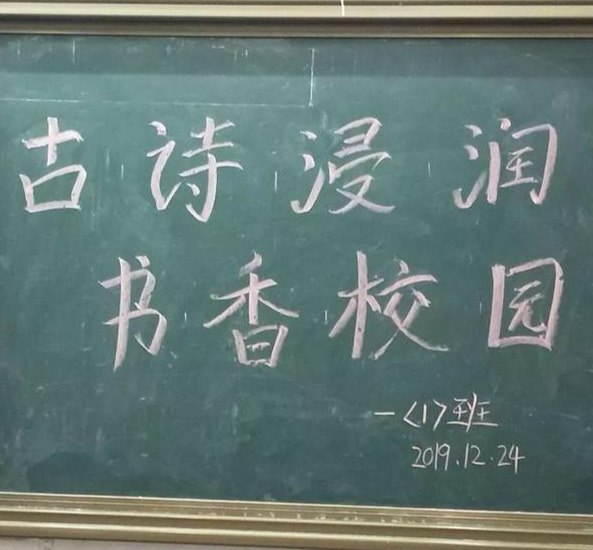 古诗浸润
书香校园
一〈1〉班
2019.12.24